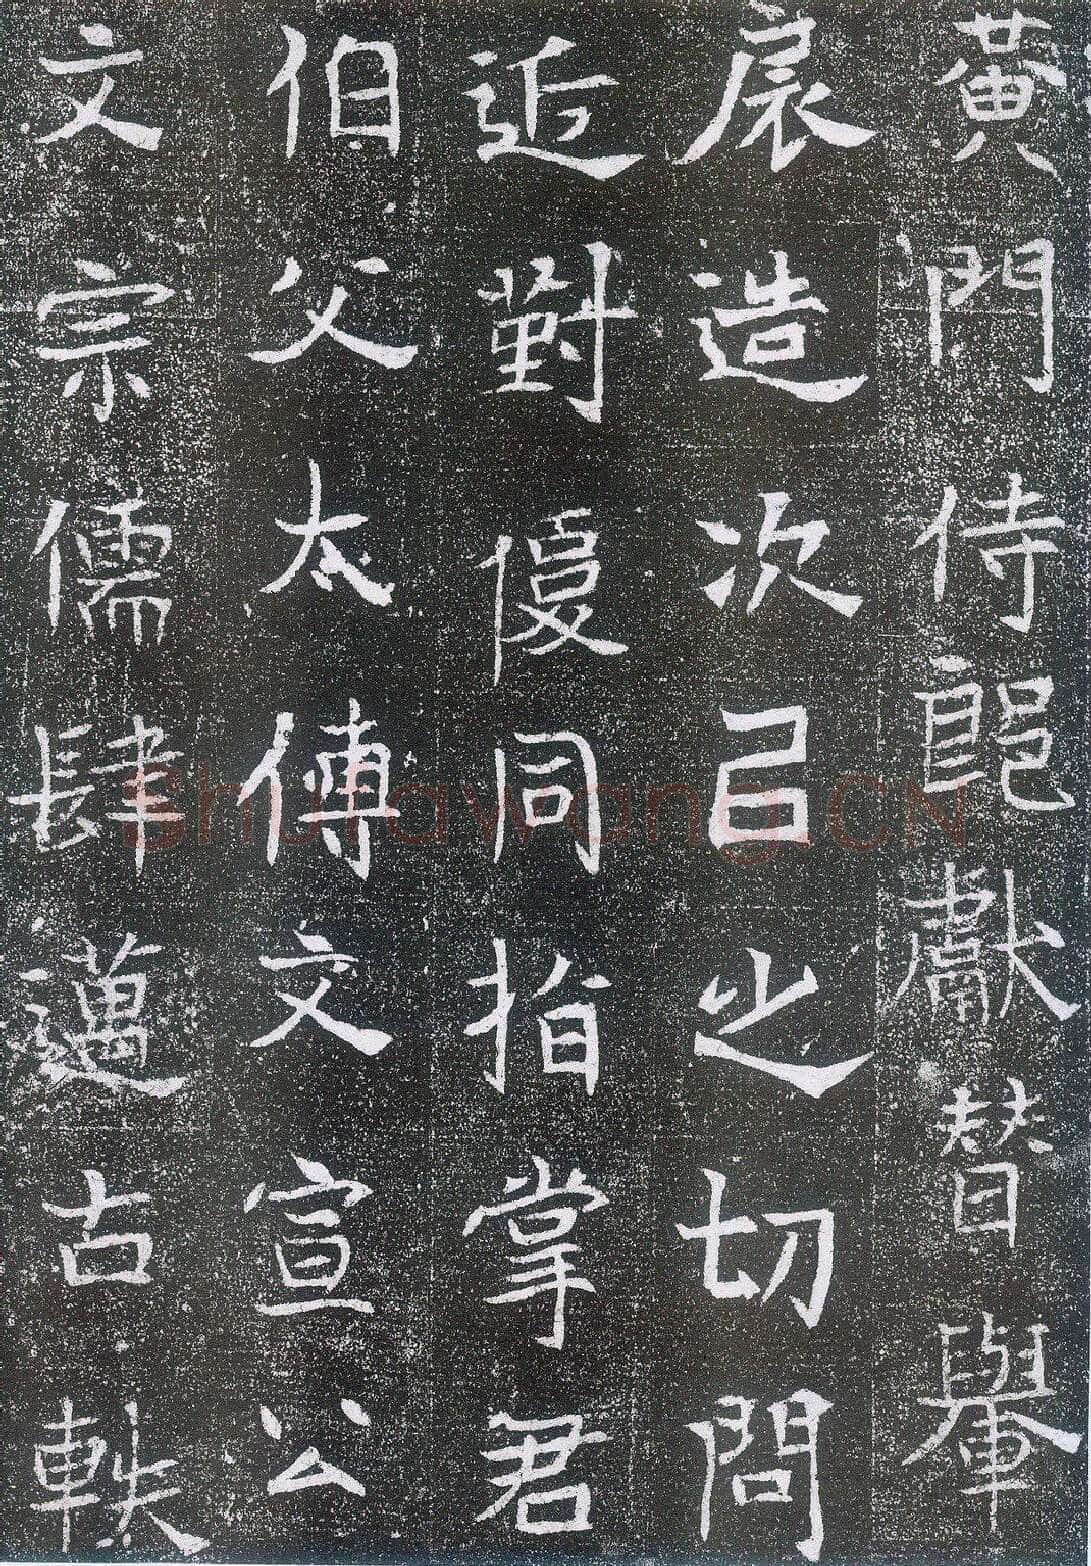 黃門侍郎獻替轝
扆造次㠯之切問
近對復同指掌君
伯父太傅文宣公
文宗儒肆邁古軼
Shufawang.CN